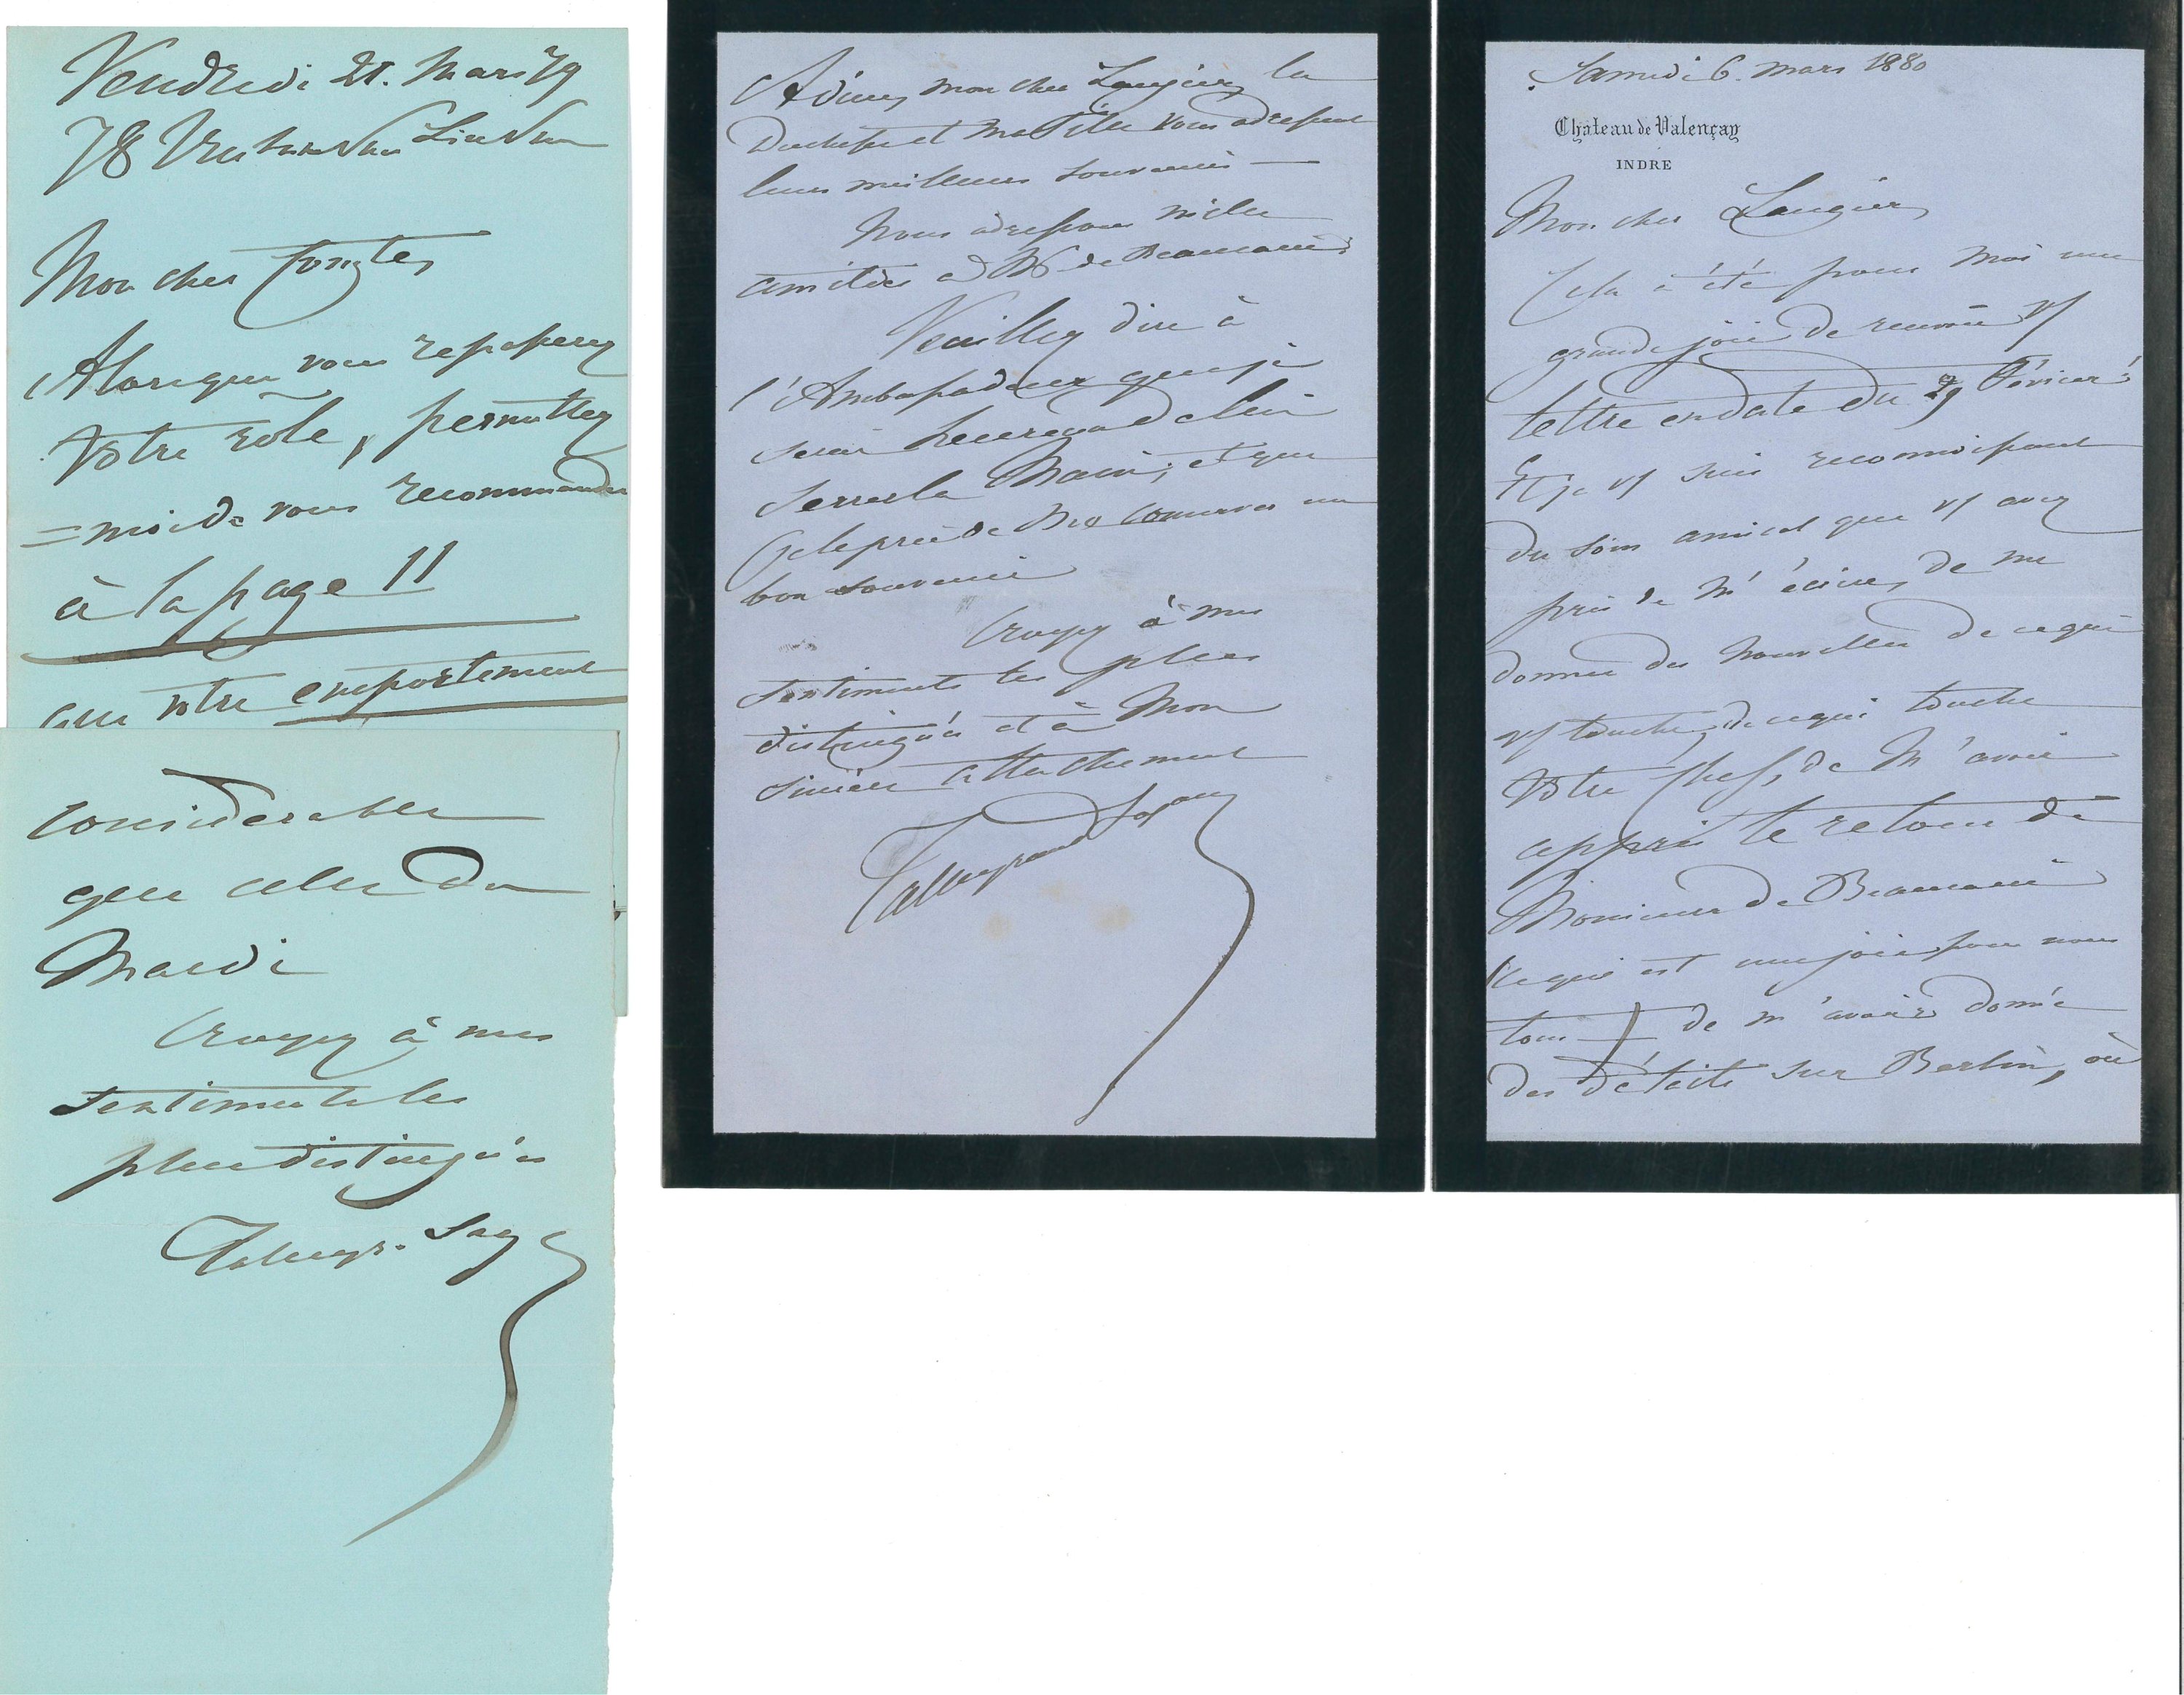 Vendredi 21. Mars 79
78 Unter den Linden
Mon cher Comte,
Alorsque vous repasserez
Votre rôle, permettez
=moi de vous recommander
à la page 11
que votre emportement
considerable
que celui du
Mardi
Croyez à mes
sentiments les
plus distingués
Talleyr. Sag
Adieu, mon cher Laugier, la
Duchesse et ma fille vous adressent
leurs meilleurs souvenirs —
Nous adressons mille
amitiés à Mr de Beaucaire
Veuillez dire à
l'Ambassadeur que je
serai heureux de lui
serrer la Main, et que
je le prie de me conserver un
bon souvenir
Croyez à mes
sentiments les plus
distingués et à Mon
sincère attachement
Talleyrand Sagan
Samedi 6. mars 1880
Château de Valençay
INDRE
Mon cher Laugier,
Cela a été pour moi une
grande joie de recevoir vs
lettre en date du 29 Février:
Et je vs suis reconnoissant
du soin amical que vs avez
pris de m'écrire, de me
donner des nouvelles de ce qui
vs touche, de ce qui touche
votre chef, de m'avoir
appris le retour de
Monsieur de Beaucaire
ce qui est une joie pour nous
tous de m'avoir donné
des détails sur Berlin, où